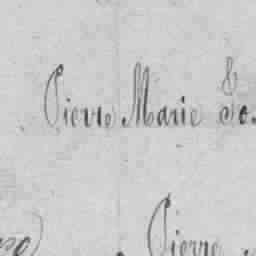 Pierre Marie & Jo.
Pierre